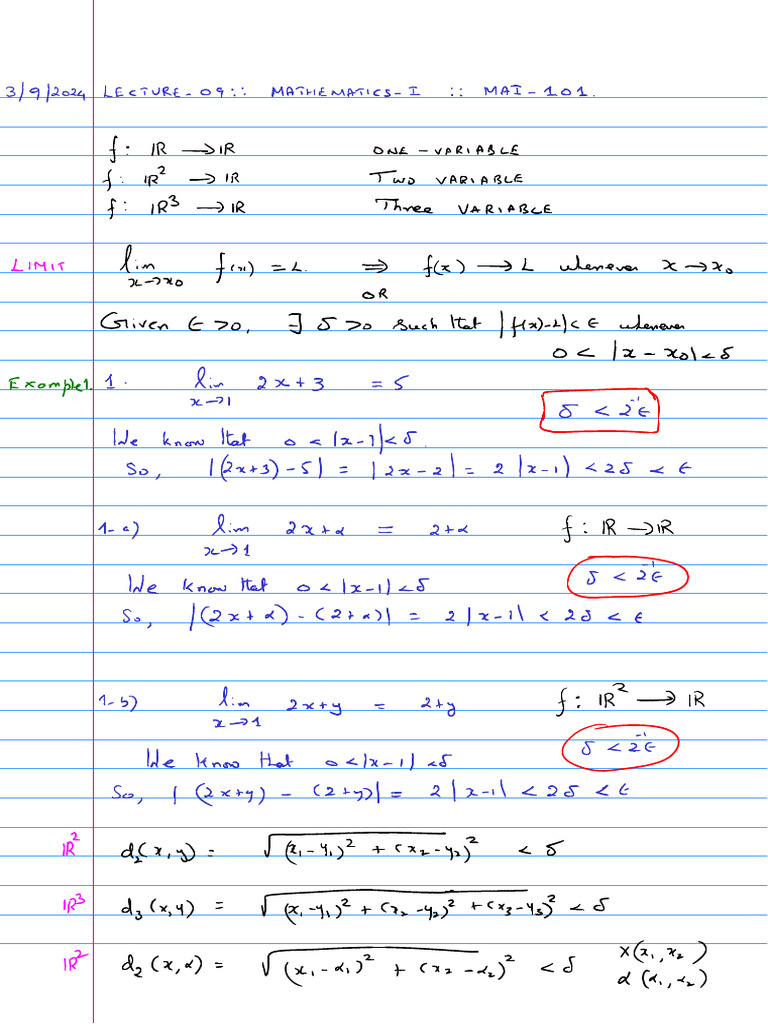 3/9/2024 LECTURE-09:: MATHEMATICS-I :: MAI-101.
f: ℝ → ℝ ONE-VARIABLE
f: ℝ² → ℝ TWO VARIABLE
f: ℝ³ → ℝ Three VARIABLE
LIMIT lim x→x₀ f(x) = L. ⇒ f(x) → L whenever x → x₀
OR
Given ϵ > 0, ∃ δ > 0 such that |f(x)-L| < ϵ whenever
0 < |x - x₀| < δ
Example 1. 1. lim x→1 2x+3 = 5
δ < 2⁻¹ϵ
We know that 0 < |x-1| < δ.
So, |(2x+3)-5| = |2x-2| = 2|x-1| < 2δ < ϵ
1-a) lim x→1 2x+α = 2+α f: ℝ → ℝ
We know that 0 < |x-1| < δ δ < 2⁻¹ϵ
So, |(2x+α) - (2+α)| = 2|x-1| < 2δ < ϵ
1-b) lim x→1 2x+y = 2+y f: ℝ² → ℝ
We know that 0 < |x-1| < δ δ < 2⁻¹ϵ
So, |(2x+y) - (2+y)| = 2|x-1| < 2δ < ϵ
ℝ² d₂(x,y) = √(x₁-y₁)² + (x₂-y₂)² < δ
ℝ³ d₃(x,y) = √(x₁-y₁)² + (x₂-y₂)² + (x₃-y₃)² < δ
ℝ² d₂(x,α) = √(x₁-α₁)² + (x₂-α₂)² < δ x(x₁,x₂)
α(α₁,α₂)